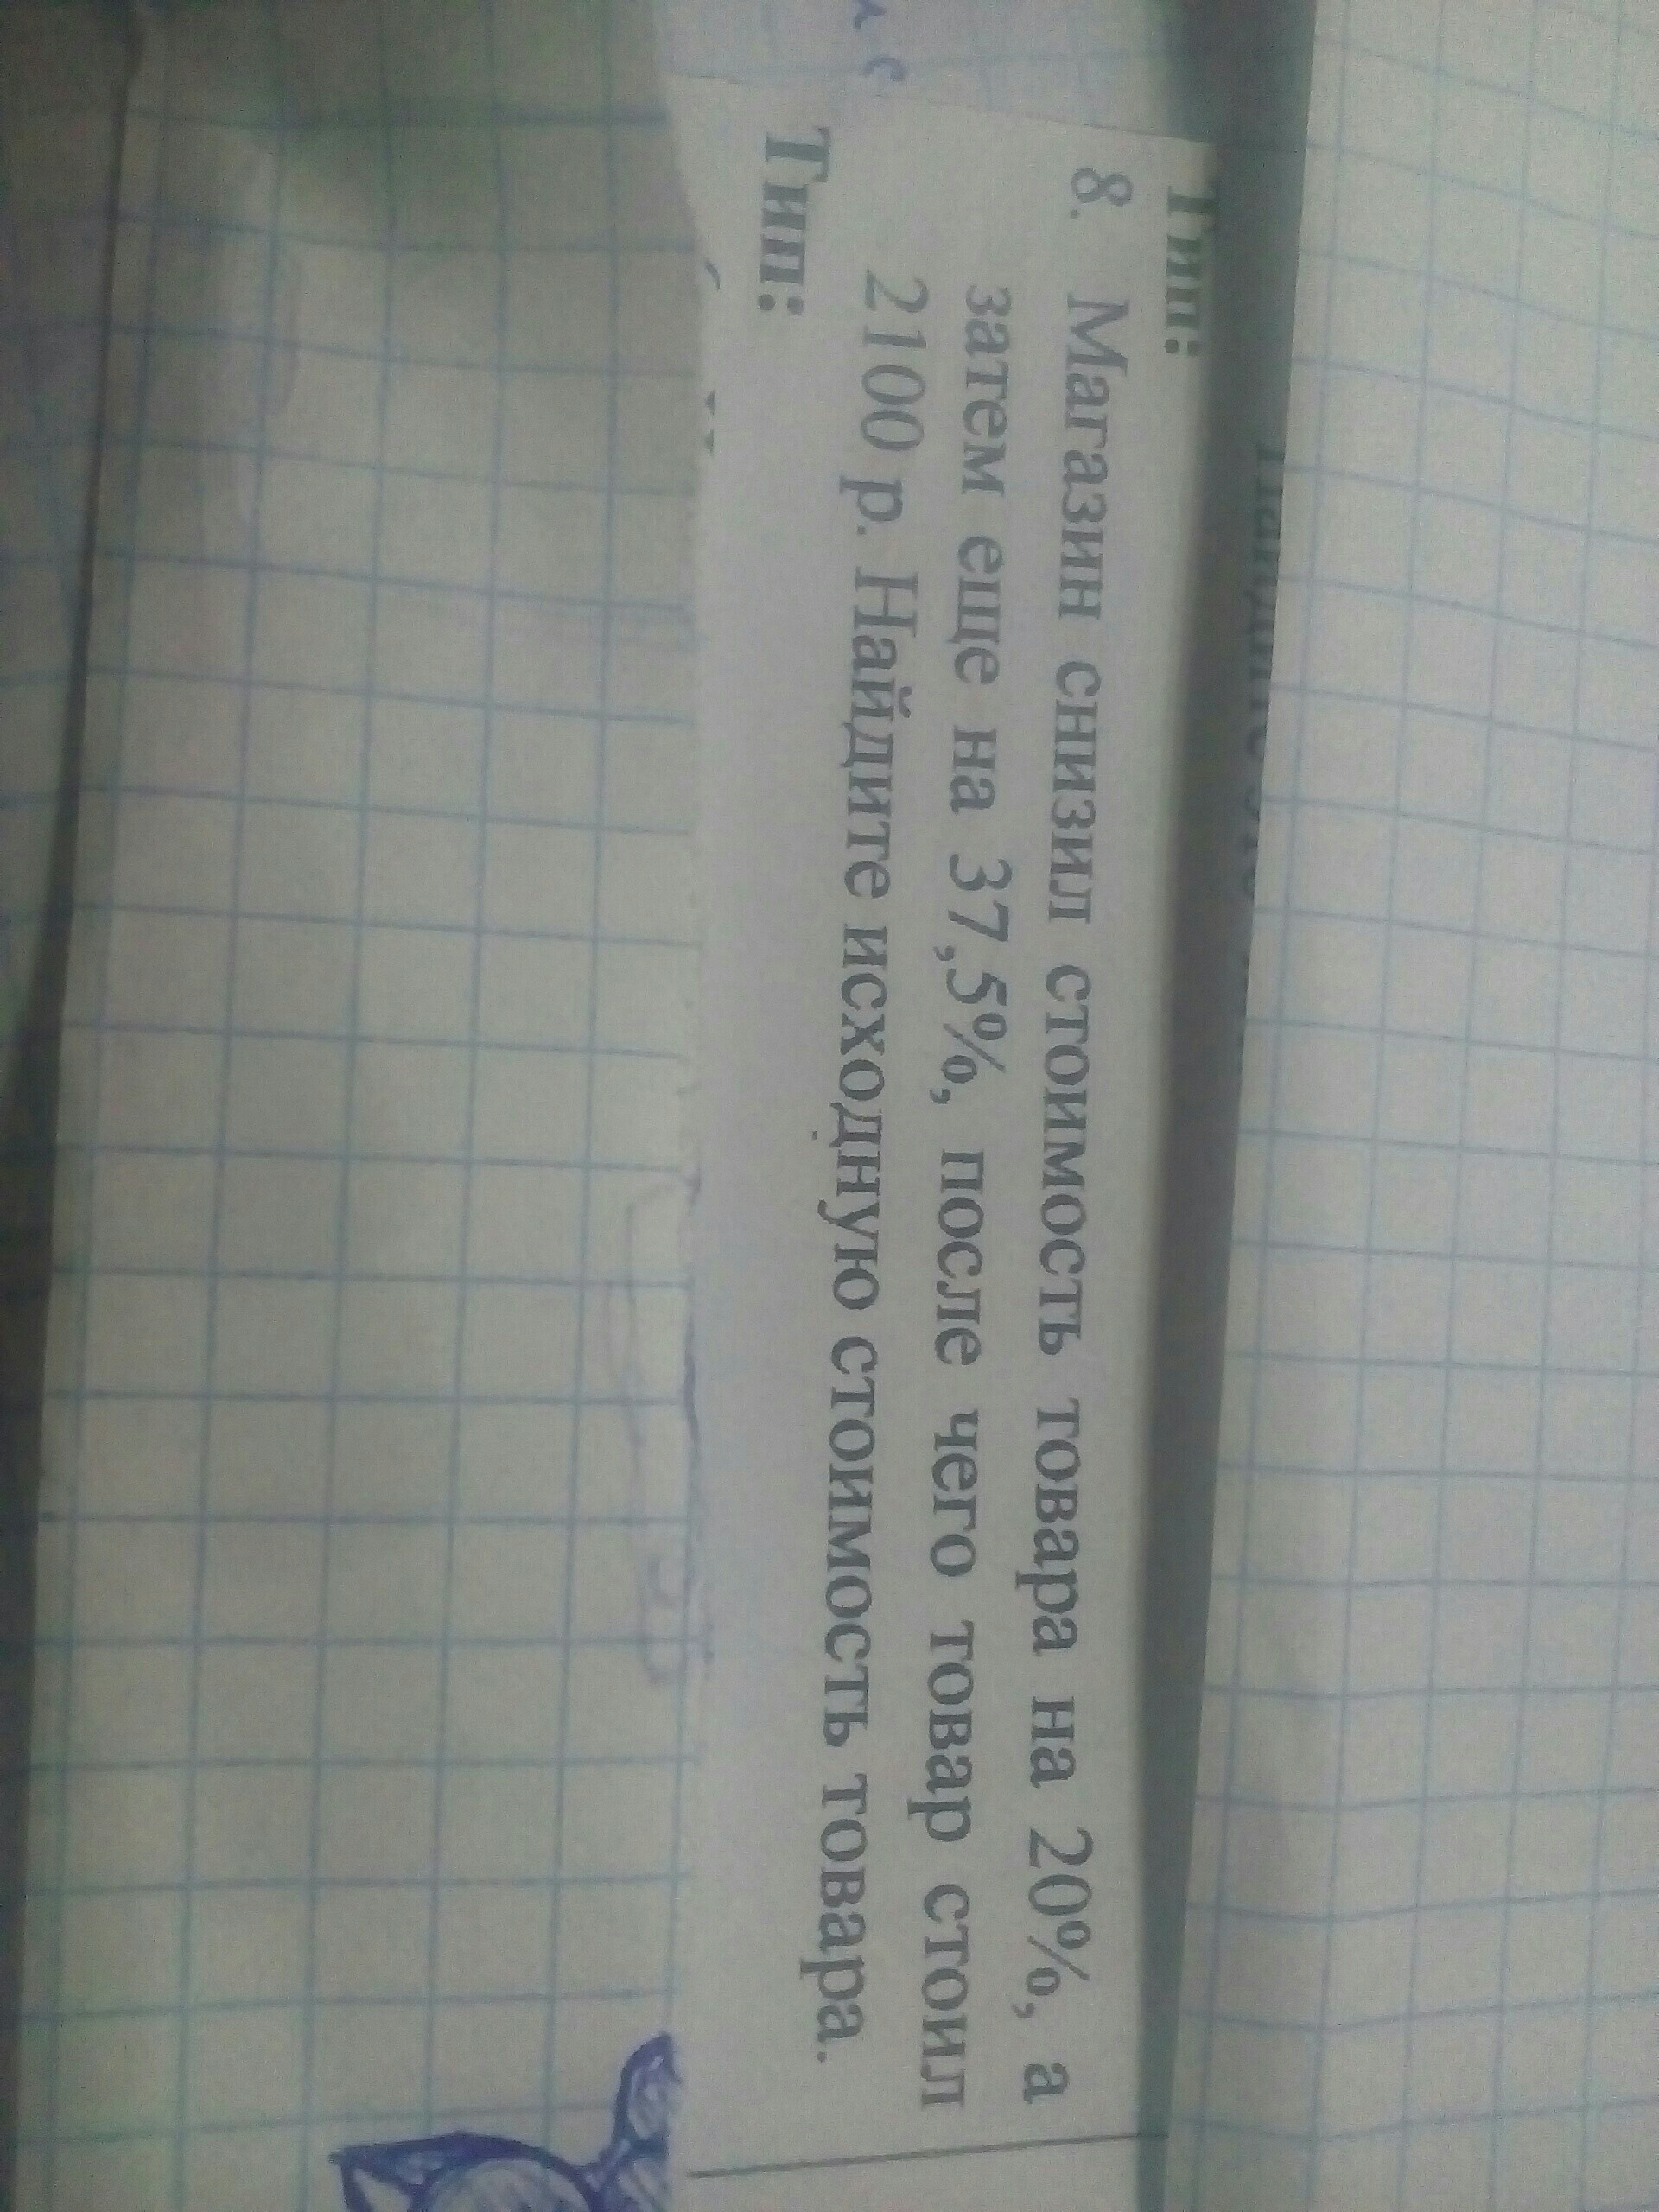 Тип:
8. Магазин снизил стоимость товара на 20%, а
затем еще на 37,5%, после чего товар стоил
2100 р. Найдите исходную стоимость товара.
Тип: